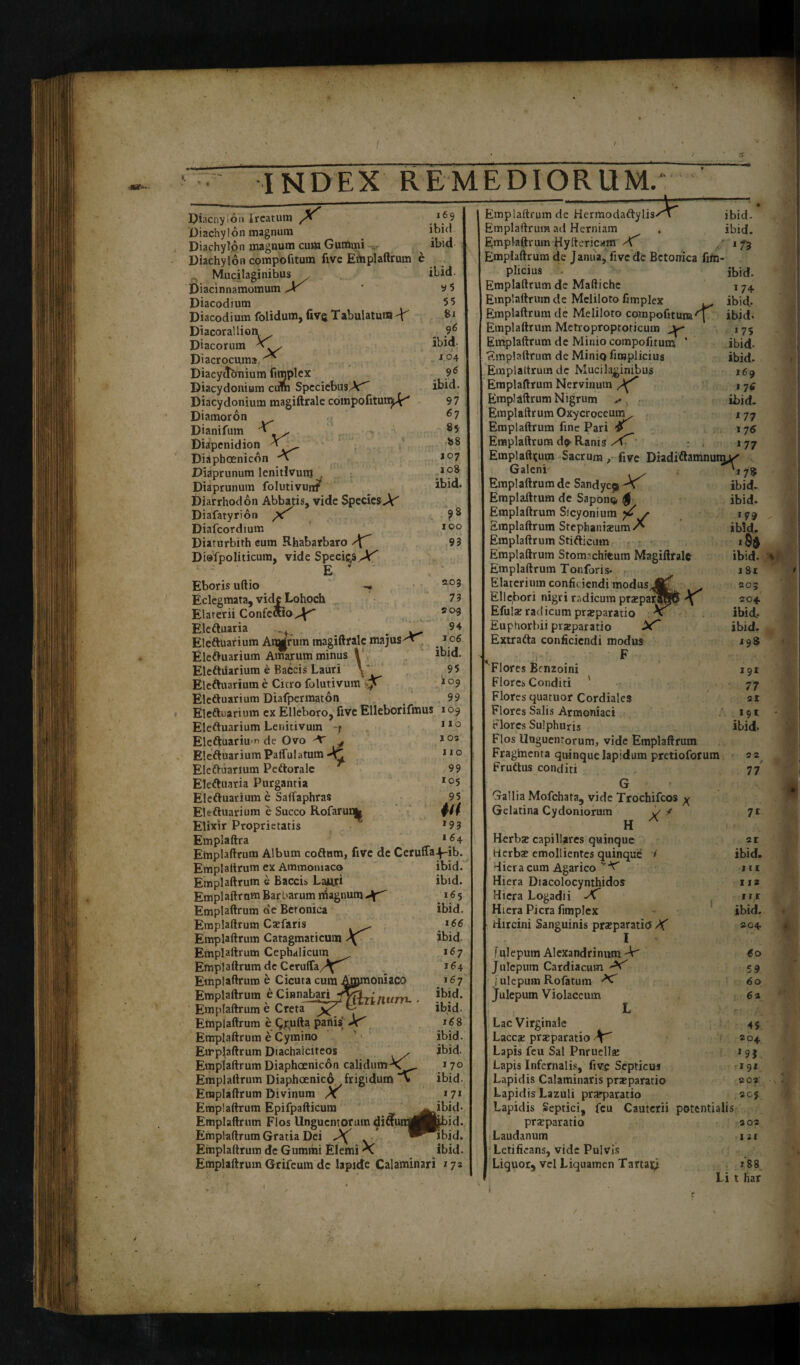 INDEX REMEDIORUM.
Diachylón Ireatum 169
Diachylón magnum ibid
Diachylón magnum cum Gummi ibid
Diachylón compoſitum ſive Emplaſtrum è
Mucilaginibus ibid.
Diacinnamomum 95
Diacodium 55
Diacodium ſolidum, ſivę Tabulatum 81
Diacorallion 96
Diacorum ibid.
Diacrocuma. 104
Diacydonium ſimplex 96
Diacydonium cum Speciebus ibid.
Diacydonium magiſtrale compoſitum 97
Diamorón 67
Dianiſum 85
Diapenidion 88
Diaphœnicón 107
Diaprunum lenitivum 108
Diaprunum ſolutivum ibid.
Diarrhodón Abbatis, vide Species
Diaſatyrión 98
Diaſcordium 100
Diaturbith cum Rhabarbaro 93
Dioſpoliticum, vide Species
E
Eboris uſtio 203
Eclegmata, vide Lohoch 73
Elaterii Confectio 203
Electuaria 94
Electuarium Amarum magiſtrale majus 106
Electuarium Amarum minus ibid.
Electuarium è Baccis Lauri 95
Electuarium è Citro ſolutivum 109
Electuarium Diaſpermatón 99
Electuarium ex Elleboro, ſive Elleboriſmus 109
Electuarium Lenitivum 110
Electuarium de Ovo 102
Electuarium Paſſulatum 110
Electuarium Pectorale 99
Electuaria Purgantia 105
Electuarium è Saſſaphras 95
Electuarium è Succo Roſarum 111
Elixir Proprietatis 193
Emplaſtra 164
Emplaſtrum Album coctum, ſive de Ceruſſa ib.
Emplaſtrum ex Ammoniaco ibid.
Emplaſtrum è Baccis Lauri ibid.
Emplaſtrum Barbarum magnum 165
Emplaſtrum de Betonica ibid.
Emplaſtrum Cæſaris 166
Emplaſtrum Catagmaticum ibid.
Emplaſtrum Cephalicum 167
Emplaſtrum de Ceruſſa 164
Emplaſtrum è Cicuta cum Ammoniaco 167
Emplaſtrum è Cinnabari ibid.
Emplaſtrum è Creta ibid.
Emplaſtrum è Cruſta panis 168
Emplaſtrum è Cymino ibid.
Emplaſtrum Diachalciteos ibid.
Emplaſtrum Diaphœnicón calidum 170
Emplaſtrum Diaphœnicó frigidum ibid.
Emplaſtrum Divinum 171
Emplaſtrum Epiſpaſticum ibid.
Emplaſtrum Flos Unguentorum dictum ibid.
Emplaſtrum Gratia Dei ibid.
Emplaſtrum de Gummi Elemi ibid.
Emplaſtrum Griſeum de lapide Calaminari 172
Emplaſtrum de Hermodactylis ibid.
Emplaſtrum ad Herniam ibid.
Emplaſtrum Hyſtericum 173
Emplaſtrum de Janua, ſive de Betonica ſim-
plicius ibid.
Emplaſtrum de Maſtiche 174
Emplaſtrum de Meliloto ſimplex ibid.
Emplaſtrum de Meliloto compoſitum ibid.
Emplaſtrum Metroproptoticum 175
Emplaſtrum de Minio compoſitum ibid.
Emplaſtrum de Minio ſimplicius ibid.
Emplaſtrum de Mucilaginibus 169
Emplaſtrum Nervinum 176
Emplaſtrum Nigrum ibid.
Emplaſtrum Oxycroceum 177
Emplaſtrum ſine Pari 176
Emplaſtrum de Ranis 177
Emplaſtrum Sacrum, ſive Diadictamnum
Galeni 178
Emplaſtrum de Sandyce ibid.
Emplaſtrum de Sapone ibid.
Emplaſtrum Sicyonium 179
Emplaſtrum Stephaniæum ibid.
Emplaſtrum Stiſticum 180
Emplaſtrum Stomachicum Magiſtrale ibid.
Emplaſtrum Tonſoris. 181
Elaterium conficiendi modus 203
Ellebori nigri radicum præparatio 204
Eſulæ radicum præparatio ibid.
Euphorbii præparatio ibid.
Extracta conficiendi modus 198
F
Flores Benzoini 191
Flores Conditi 77
Flores quatuor Cordiales 21
Flores Salis Armoniaci 191
Flores Sulphuris ibid.
Flos Unguentorum, vide Emplaſtrum
Fragmenta quinque lapidum pretioſorum 22
Fructus conditi 77
G
Gallia Moſchata, vide Trochiſcos
Gelatina Cydoniorum 71
H
Herbæ capillares quinque 21
Herbæ emollientes quinque ibid.
Hiera cum Agarico 111
Hiera Diacolocynthidos 112
Hiera Logadii 111
Hiera Picra ſimplex ibid.
Hircini Sanguinis præparatio 204
I
Julepum Alexandrinum 60
Julepum Cardiacum 59
Julepum Roſatum 60
Julepum Violaceum 62
L
Lac Virginale 45
Laccæ præparatio 204
Lapis ſeu Sal Prunellæ 193
Lapis Infernalis, ſive Septicus 191
Lapidis Calaminaris præparatio 202
Lapidis Lazuli præparatio 205
Lapidis Septici, ſeu Cauterii potentialis
præparatio 202
Laudanum 121
Letificans, vide Pulvis
Liquor, vel Liquamen Tartari 188
Li t har